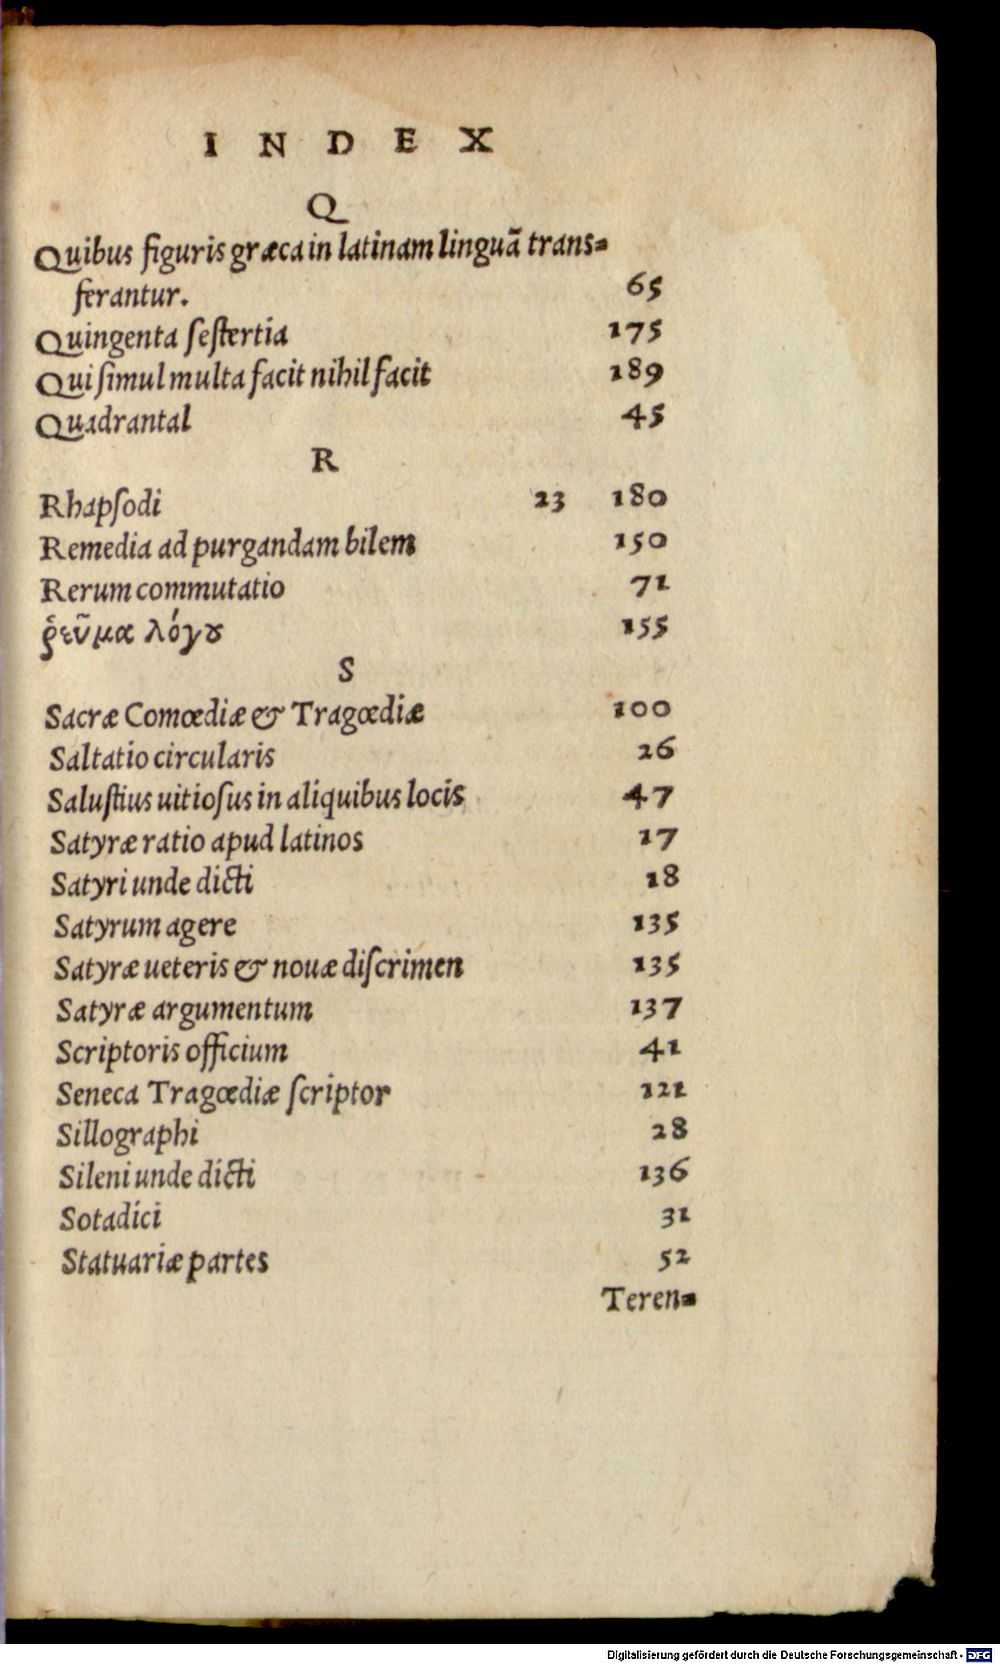 INDEX
Q
Quibus figuris græca in latinam linguã trans=
ferantur. 65
Quingenta seſtertia 175
Qui ſimul multa facit nihil facit 189
Quadrantal 45
R
Rhapſodi 23 180
Remedia ad purgandam bilem 150
Rerum commutatio 71
ῥεῦμα λόγȣ 155
S
Sacræ Comœdiæ & Tragœdiæ 100
Saltatio circularis 26
Saluſtius uitioſus in aliquibus locis 47
Satyræ ratio apud latinos 17
Satyri unde dicti 18
Satyrum agere 135
Satyræ ueteris & nouæ diſcrimen 135
Satyræ argumentum 137
Scriptoris officium 41
Seneca Tragœdiæ ſcriptor 121
Sillographi 28
Sileni unde dicti 136
Sotadici 31
Statuariæ partes 52
Teren=
Digitalisierung gefördert durch die Deutsche Forschungsgemeinschaft - DFG